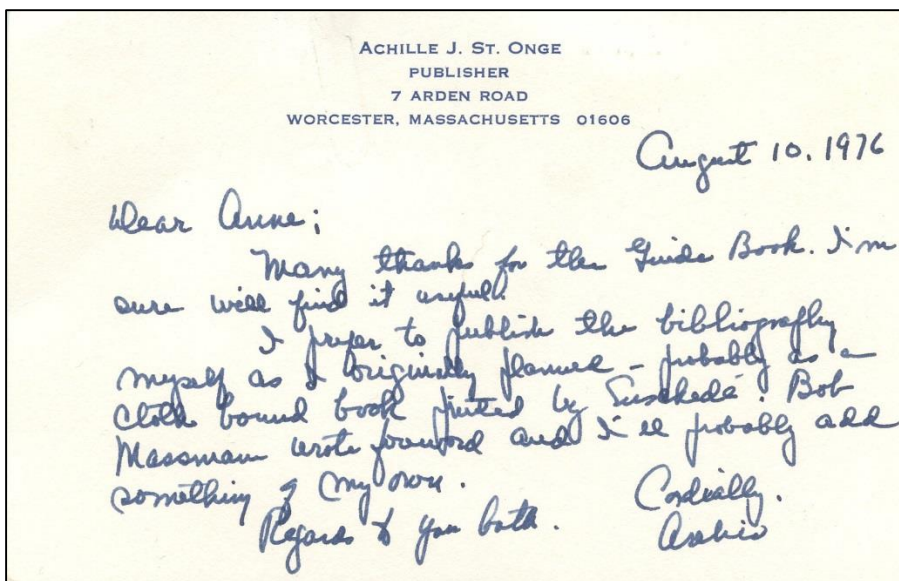 ACHILLE J. ST. ONGE
PUBLISHER
7 ARDEN ROAD
WORCESTER, MASSACHUSETTS 01606
August 10. 1976
Dear Anne;
Many thanks for the Guide Book. I'm
sure will find it useful.
I prefer to publish the bibliography
myself as I originally planned - probably as a
cloth bound book printed by Enschedé. Bob
Massmann wrote foreword and I'll probably add
something of my own.
Cordially.
Regards to you both.